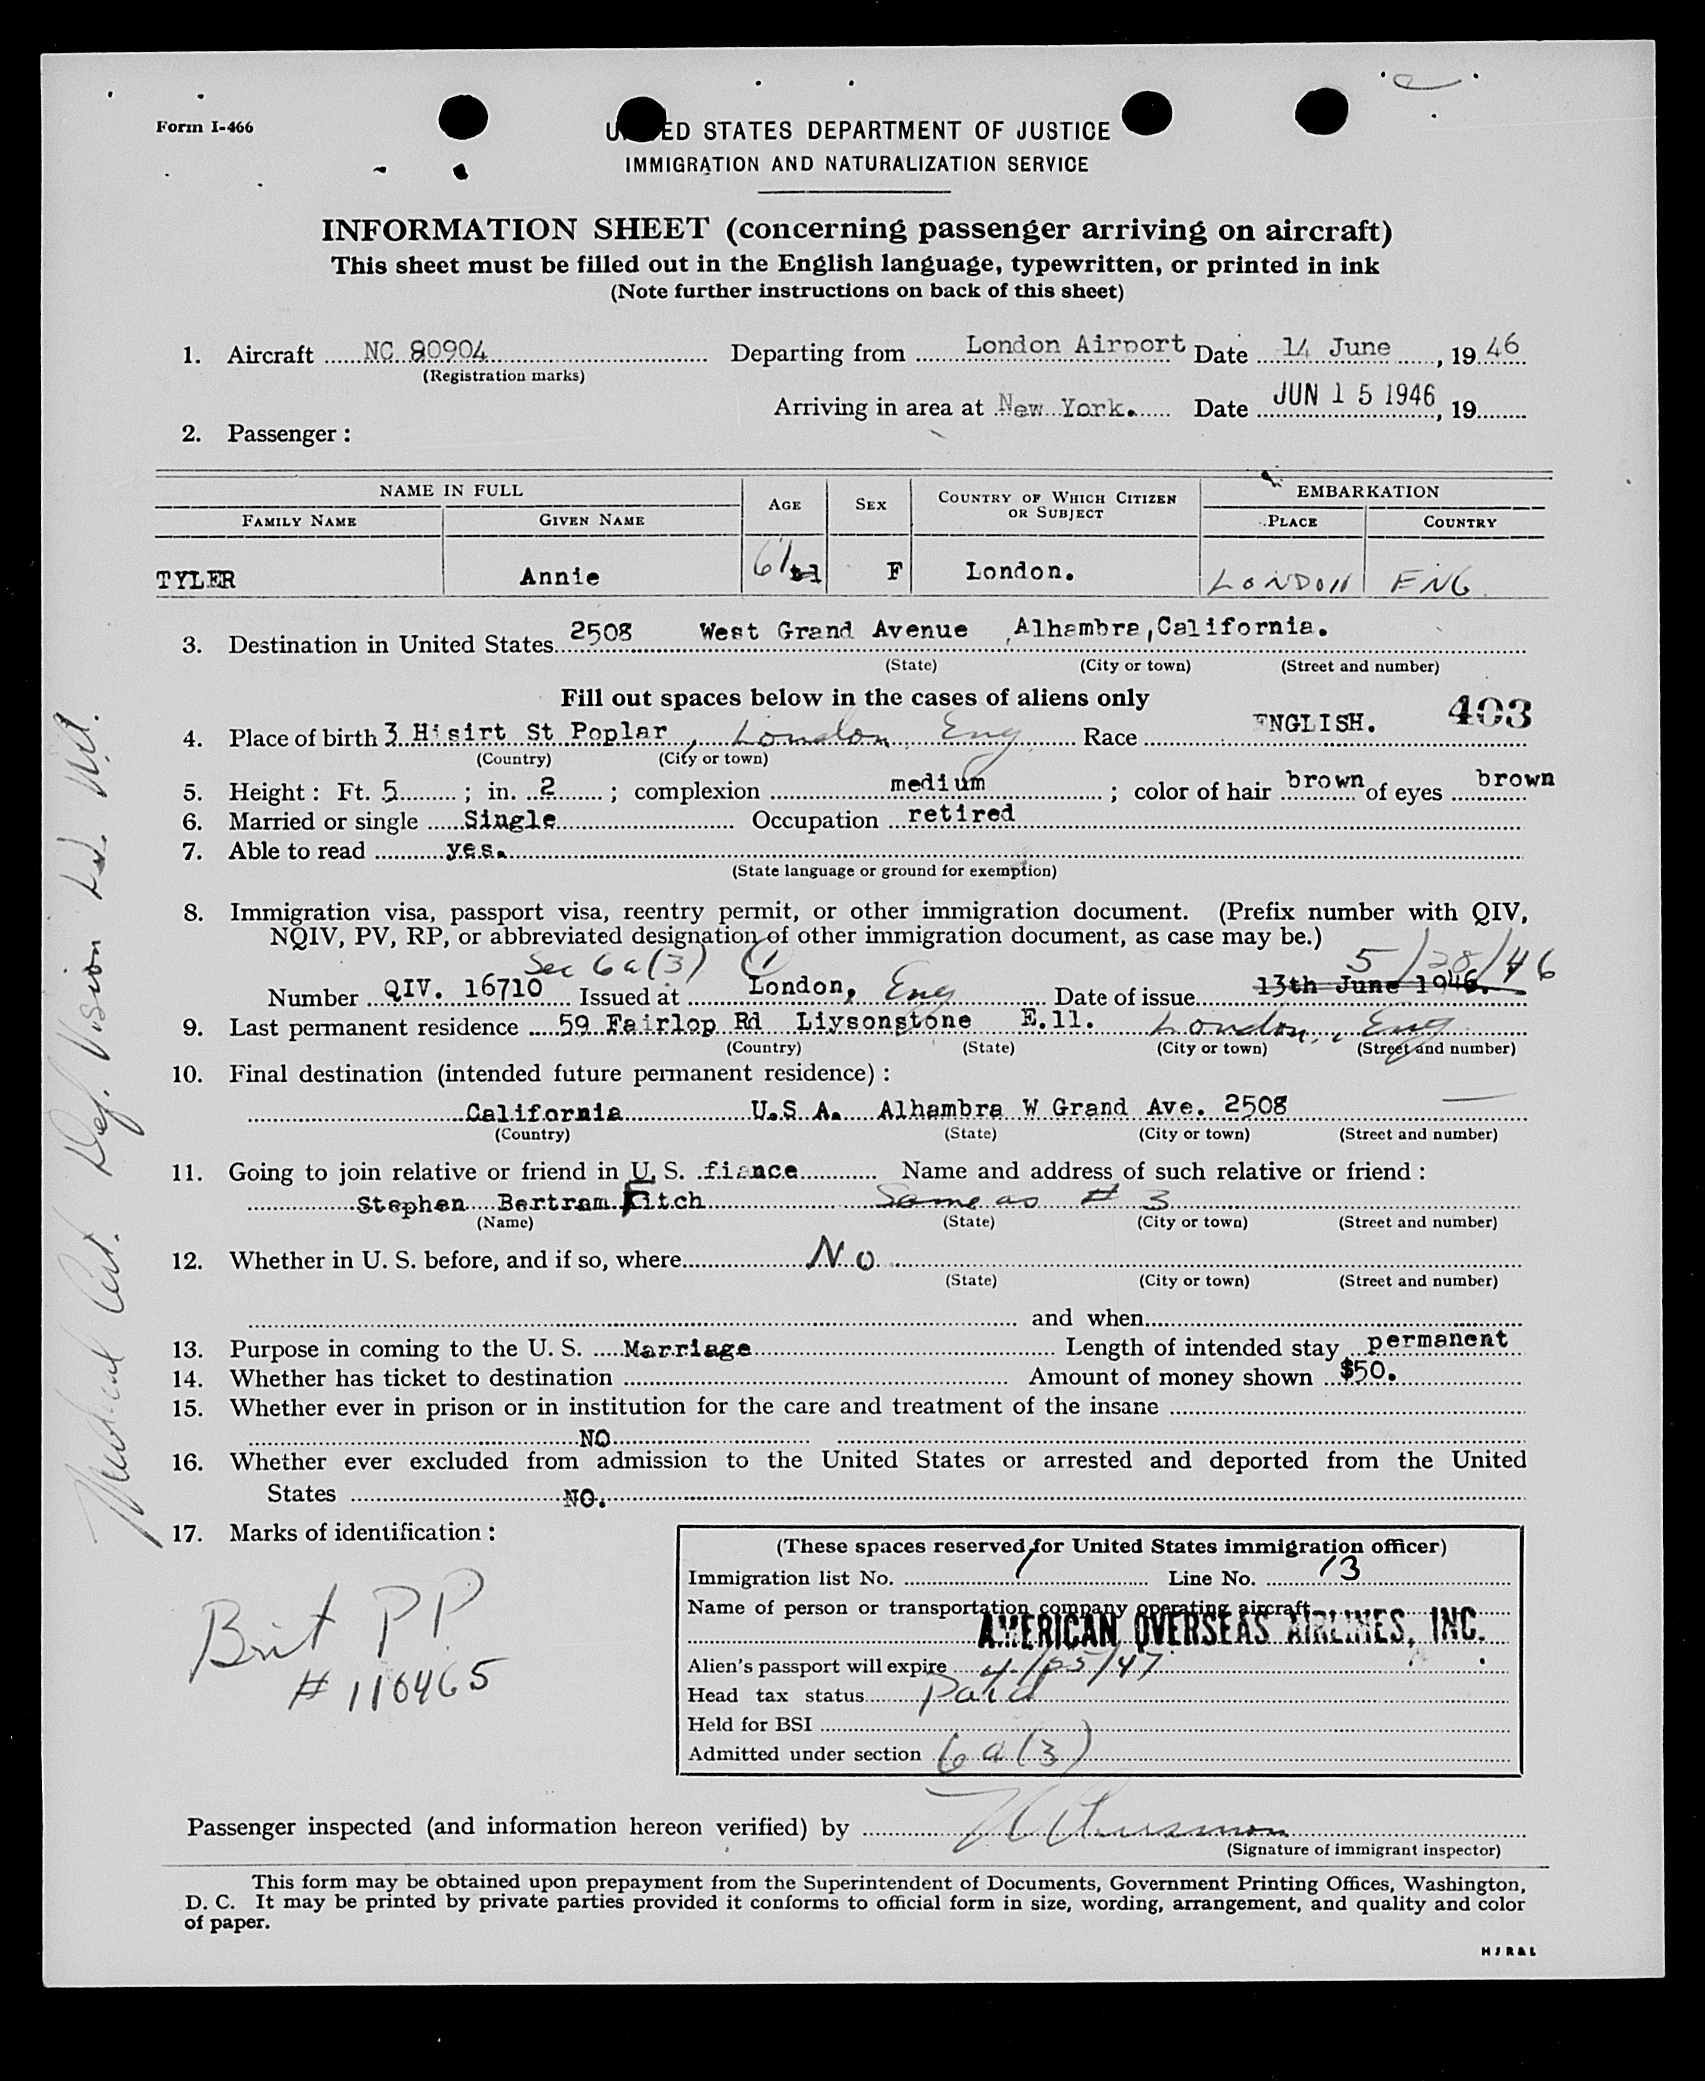 Form I-466
UNITED STATES DEPARTMENT OF JUSTICE
IMMIGRATION AND NATURALIZATION SERVICE
INFORMATION SHEET (concerning passenger arriving on aircraft)
This sheet must be filled out in the English language, typewritten, or printed in ink
(Note further instructions on back of this sheet)
1. Aircraft NC 80904 Departing from London Airport Date 14 June, 19 46
(Registration marks)
Arriving in area at New York. Date JUN 15 1946, 19
2. Passenger:
NAME IN FULL AGE SEX COUNTRY OF WHICH CITIZEN OR SUBJECT EMBARKATION
FAMILY NAME GIVEN NAME PLACE COUNTRY
TYLER Annie 61 F London. LONDON ENG.
3. Destination in United States 2508 West Grand Avenue, Alhambra, California.
(State) (City or town) (Street and number)
Fill out spaces below in the cases of aliens only 403
4. Place of birth 3 Hisirt St Poplar, London, Eng. Race ENGLISH.
(Country) (City or town)
5. Height: Ft. 5; in. 2; complexion medium; color of hair brown of eyes brown
6. Married or single Single Occupation retired
7. Able to read yes.
(State language or ground for exemption)
8. Immigration visa, passport visa, reentry permit, or other immigration document. (Prefix number with QIV,
NQIV, PV, RP, or abbreviated designation of other immigration document, as case may be.)
Sec 6a(3) 5/28/46
Number QIV. 16710 Issued at London, Eng Date of issue 13th June 1946.
9. Last permanent residence 59 Fairlop Rd Liysonstone E.11. London, Eng
(Country) (State) (City or town) (Street and number)
10. Final destination (intended future permanent residence):
California U.S.A. Alhambra W Grand Ave. 2508
(Country) (State) (City or town) (Street and number)
11. Going to join relative or friend in U. S. fiance Name and address of such relative or friend:
Stephen Bertram Fitch Same as # 3
(Name) (State) (City or town) (Street and number)
12. Whether in U. S. before, and if so, where No
(State) (City or town) (Street and number)
and when
13. Purpose in coming to the U. S. Marriage Length of intended stay permanent
14. Whether has ticket to destination Amount of money shown $50.
15. Whether ever in prison or in institution for the care and treatment of the insane
NO
16. Whether ever excluded from admission to the United States or arrested and deported from the United
States NO.
17. Marks of identification:
Brit P.P.
# 110465
(These spaces reserved for United States immigration officer)
Immigration list No. 1 Line No. 13
Name of person or transportation company operating aircraft
AMERICAN OVERSEAS AIRLINES, INC.
Alien's passport will expire 4/25/47
Head tax status Paid
Held for BSI
Admitted under section 6a(3)
Passenger inspected (and information hereon verified) by
(Signature of immigrant inspector)
This form may be obtained upon prepayment from the Superintendent of Documents, Government Printing Offices, Washington,
D. C. It may be printed by private parties provided it conforms to official form in size, wording, arrangement, and quality and color
of paper.
Medical Cert. Def. Vision